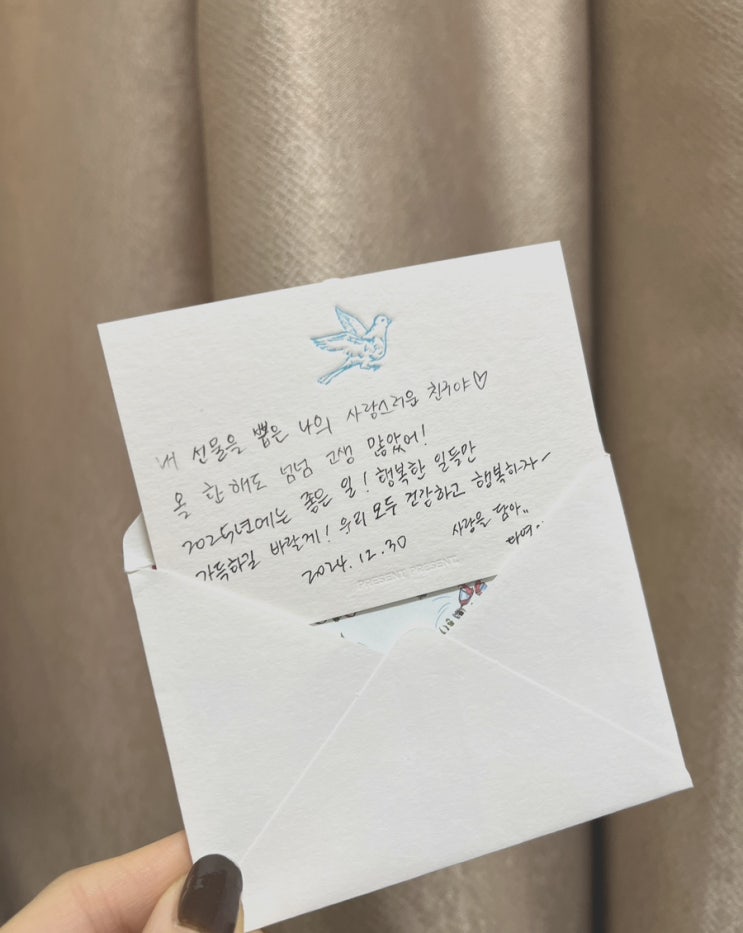 내 선물을 뽑은 나의 사랑스러운 친구야♡
올 한해도 넘넘 고생 많았어!
2025년에는 좋은 일! 행복한 일들만
가득하길 바랄게! 우리 모두 건강하고 행복하자~
2024.12.30 사랑을 담아..
PRESENT, PRESENT.